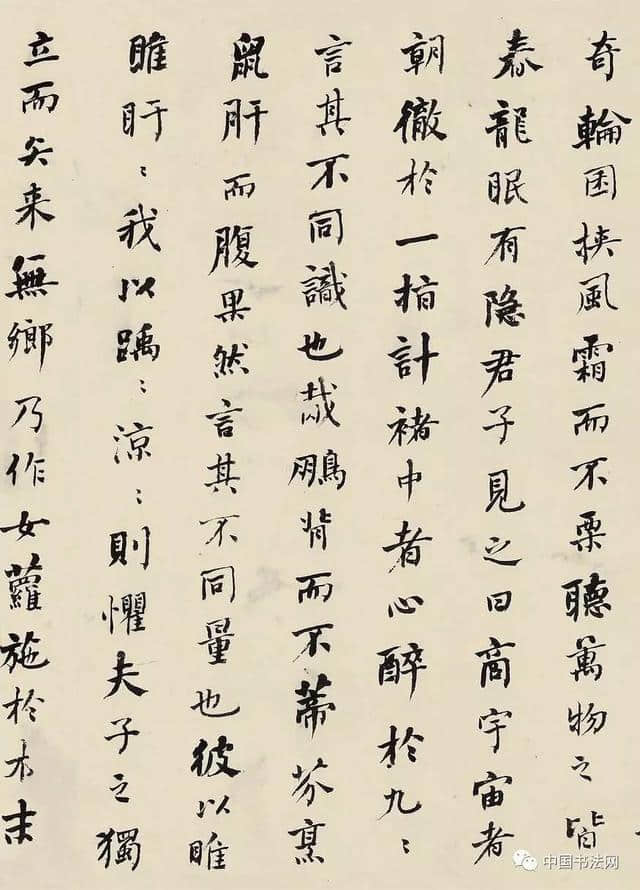 奇輪囷挾風霜而不栗聽萬物之皆
泰龍眠有隐君子見之曰商宇宙者
朝徹於一指計褚中者心醉於九〻
言其不同識也哉鵬背而不蒂芬烹
鼠肝而腹果然言其不同量也彼以睢
睢盱〻我以踽〻涼〻則懼夫子之獨
立而矢来無鄉乃作女蘿施於木末
中国书法网